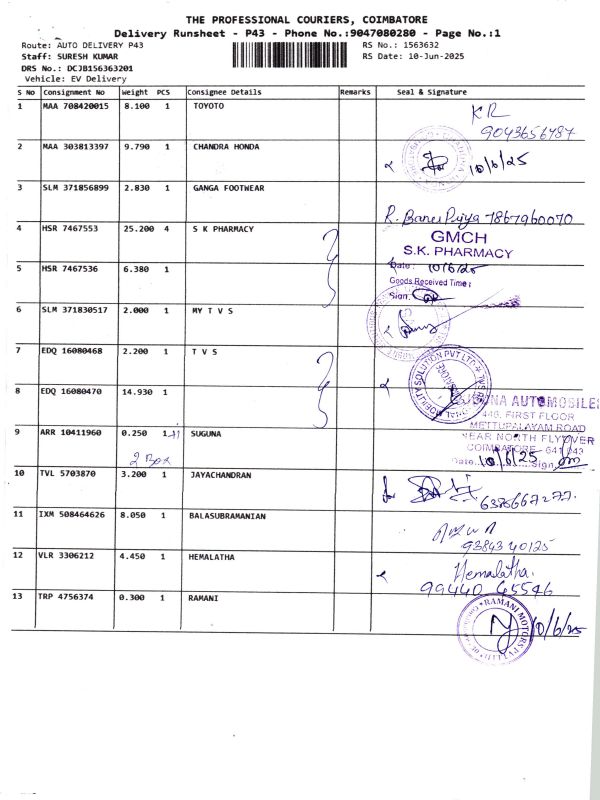 THE PROFESSIONAL COURIERS, COIMBATORE
Delivery Runsheet - P43 - Phone No.:9047080280 - Page No.:1
Route: AUTO DELIVERY P43 RS No.: 1563632
Staff: SURESH KUMAR RS Date: 10-Jun-2025
DRS No.: DCJB156363201
Vehicle: EV Delivery
S No Consignment No Weight PCS Consignee Details Remarks Seal & Signature
1 MAA 708420015 8.100 1 TOYOTO KR
9043656787
2 MAA 303813397 9.790 1 CHANDRA HONDA 10/6/25
3 SLM 371856899 2.830 1 GANGA FOOTWEAR
R. Banu Priya 7867960070
4 HSR 7467553 25.200 4 S K PHARMACY GMCH
S.K. PHARMACY
5 HSR 7467536 6.380 1 Date: 10/6/25
Goods Received Time:
Sign:
6 SLM 371830517 2.000 1 MY T V S
7 EDQ 16080468 2.200 1 T V S
MOBILITY SOLUTION PVT LTD
8 EDQ 16080470 14.930 1
SUGUNA AUTOMOBILES
446, FIRST FLOOR
METTUPALAYAM ROAD
9 ARR 10411960 0.250 1 +1 SUGUNA NEAR NORTH FLYOVER
COIMBATORE - 641 043
2 Box Date 10/6/25 Sign
10 TVL 5703870 3.200 1 JAYACHANDRAN
6385667277
11 IXM 508464626 8.050 1 BALASUBRAMANIAN
9384340125
12 VLR 3306212 4.450 1 HEMALATHA Hemalatha.
99440 45546
13 TRP 4756374 0.300 1 RAMANI RAMANI MOTORS PVT LTD
10/6/25